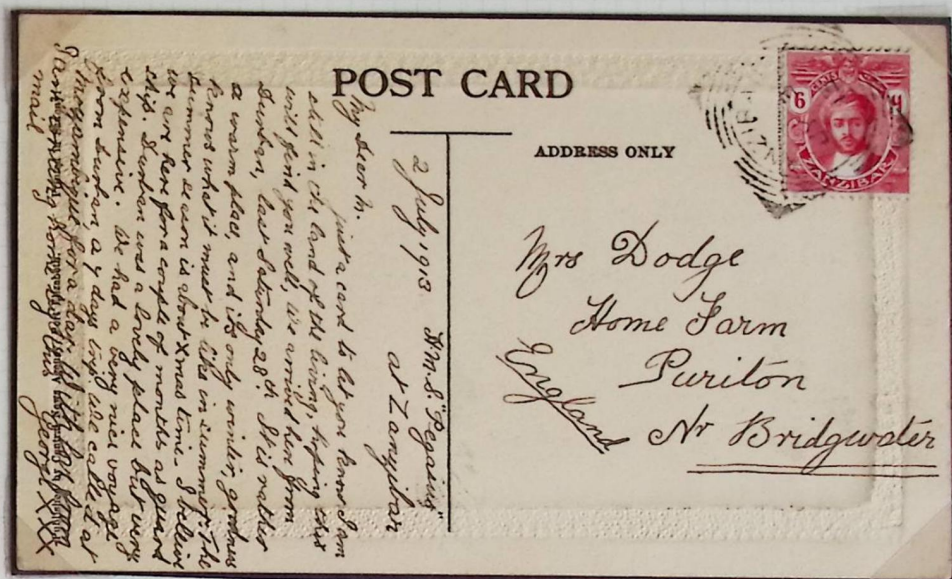 POST CARD
ADDRESS ONLY
6
ZANZIBAR
2 July 1913 H.M.S. "Pegasus"
at Zanzibar
My Dear M.
Just a card to let you know I am
still in the land of the living, hoping this
will find you well, We arrived here from
Durban, last Saturday 28th. It is rather
a warm place, and its only winter, goodness
knows what it must be like in summer. The
summer season is about Xmas time. I believe
we are here for a couple of months as guard
ship. Durban was a lovely place but very
expensive. We had a very nice voyage
from Durban, a 7 days trip. We called at
Mozambique for a day. With
mail
George XXX
Mrs Dodge
Home Farm
Puriton
Nr Bridgwater
England